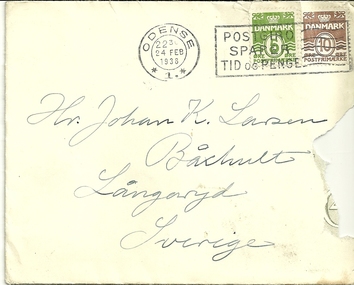 ODENSE
22 3
24 FEB
1938
* 1. *
POSTGIRO
SPARER
TID OG PENGE
DANMARK
5
ØRE ØRE
DANMARK
10
ØRE ØRE
POSTFRIMÆRKE
Hr. Johan K. Larsen
Båchult
Långaryd
Sverige